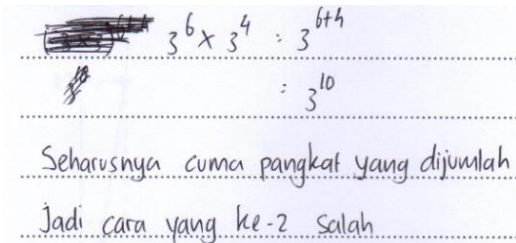 3^6 x 3^4 : 3^{6+4}
: 3^{10}
Seharusnya cuma pangkat yang dijumlah
Jadi cara yang ke-2 salah